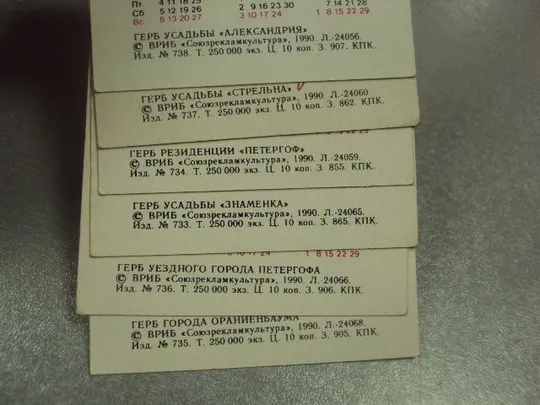 Пт 4 11 18 25 1 8 15 22 29 6 13 20 27
Сб 5 12 19 26 2 9 16 23 30 7 14 21 28
Вс 6 13 20 27 3 10 17 24 1 8 15 22 29
ГЕРБ УСАДЬБЫ «АЛЕКСАНДРИЯ»
© ВРИБ «Союзрекламкультура», 1990. Л.-24056.
Изд. № 738. Т. 250 000 экз. Ц. 10 коп. З. 907. КПК.
ГЕРБ УСАДЬБЫ «СТРЕЛЬНА»
© ВРИБ «Союзрекламкультура», 1990. Л.-24060.
Изд. № 737. Т. 250 000 экз. Ц. 10 коп. З. 862. КПК.
ГЕРБ РЕЗИДЕНЦИИ «ПЕТЕРГОФ»
© ВРИБ «Союзрекламкультура», 1990. Л.-24059.
Изд. № 734. Т. 250 000 экз. Ц. 10 коп. З. 855. КПК.
ГЕРБ УСАДЬБЫ «ЗНАМЕНКА»
© ВРИБ «Союзрекламкультура», 1990. Л.-24065.
Изд. № 733. Т. 250 000 экз. Ц. 10 коп. З. 865. КПК.
10 17 24 1 8 15 22 29
ГЕРБ УЕЗДНОГО ГОРОДА ПЕТЕРГОФА
© ВРИБ «Союзрекламкультура», 1990. Л.-24066.
Изд. № 736. Т. 250 000 экз. Ц. 10 коп. З. 906. КПК.
ГЕРБ ГОРОДА ОРАНИЕНБАУМА
© ВРИБ «Союзрекламкультура», 1990. Л.-24068.
Изд. № 735. Т. 250 000 экз. Ц. 10 коп. З. 905. КПК.